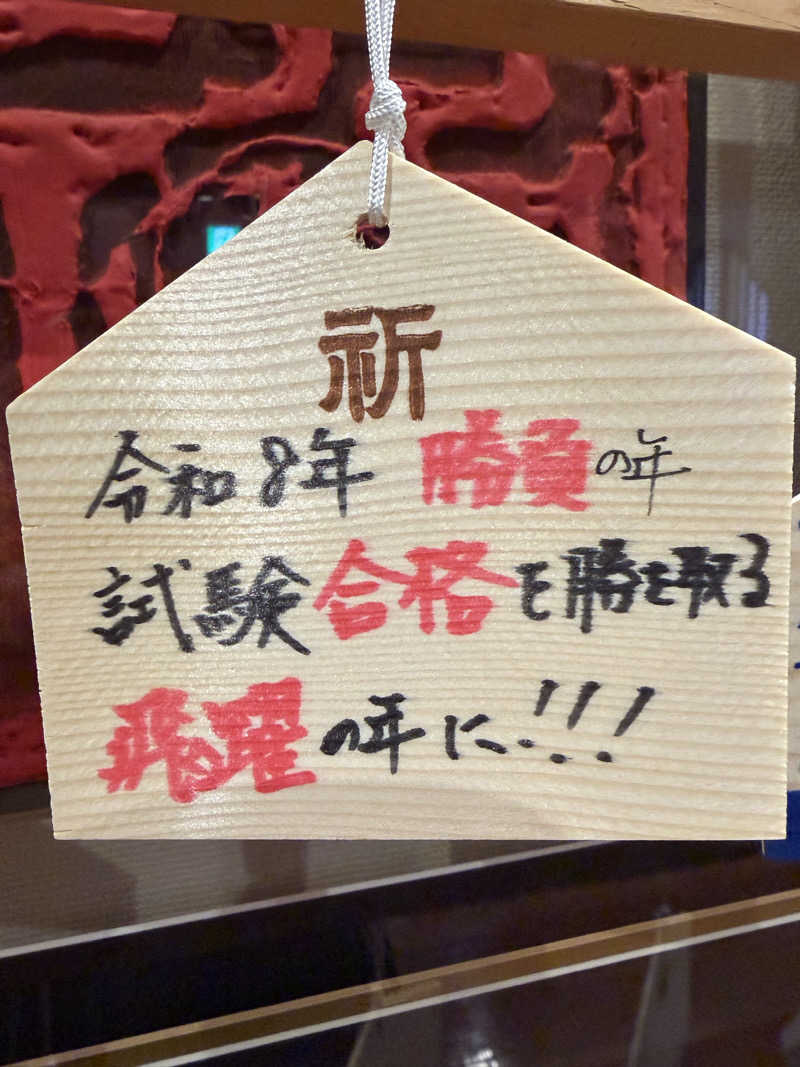 祈
令和8年 勝負の年
試験合格を勝を取る
飛躍の年に!!!